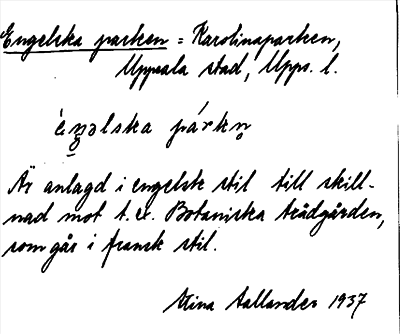 Engelska parken = Karolinaparken,
Uppsala stad, Upps. l.
èŋəlska párkn̥
Är anlagd i engelsk stil till skill-
nad mot t. ex. Botaniska trädgården,
som går i fransk stil.
Stina Sallander 1937